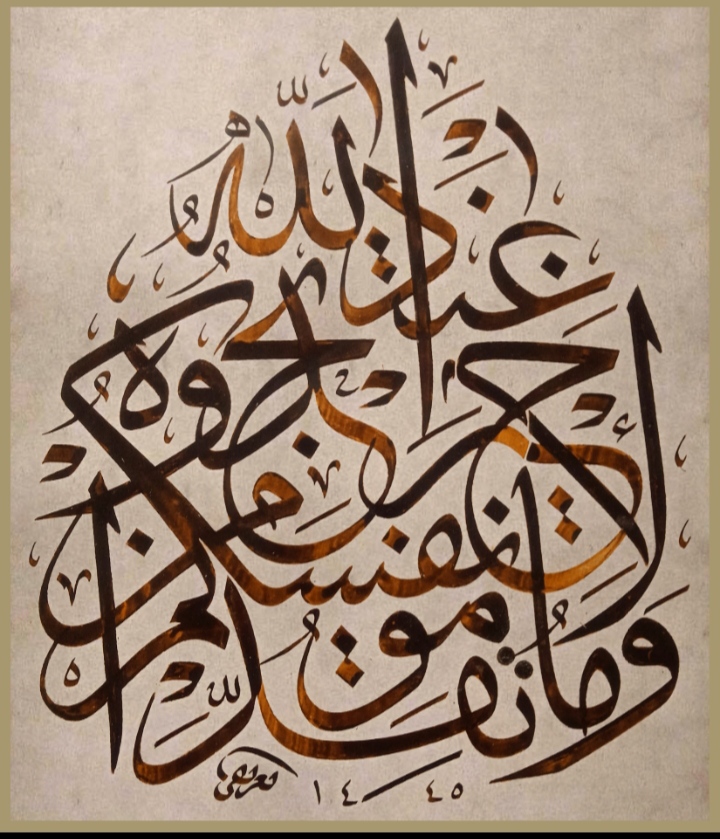 وما تقدموا لأنفسكم من خير تجدوه عند الله
١٤ ٤٥